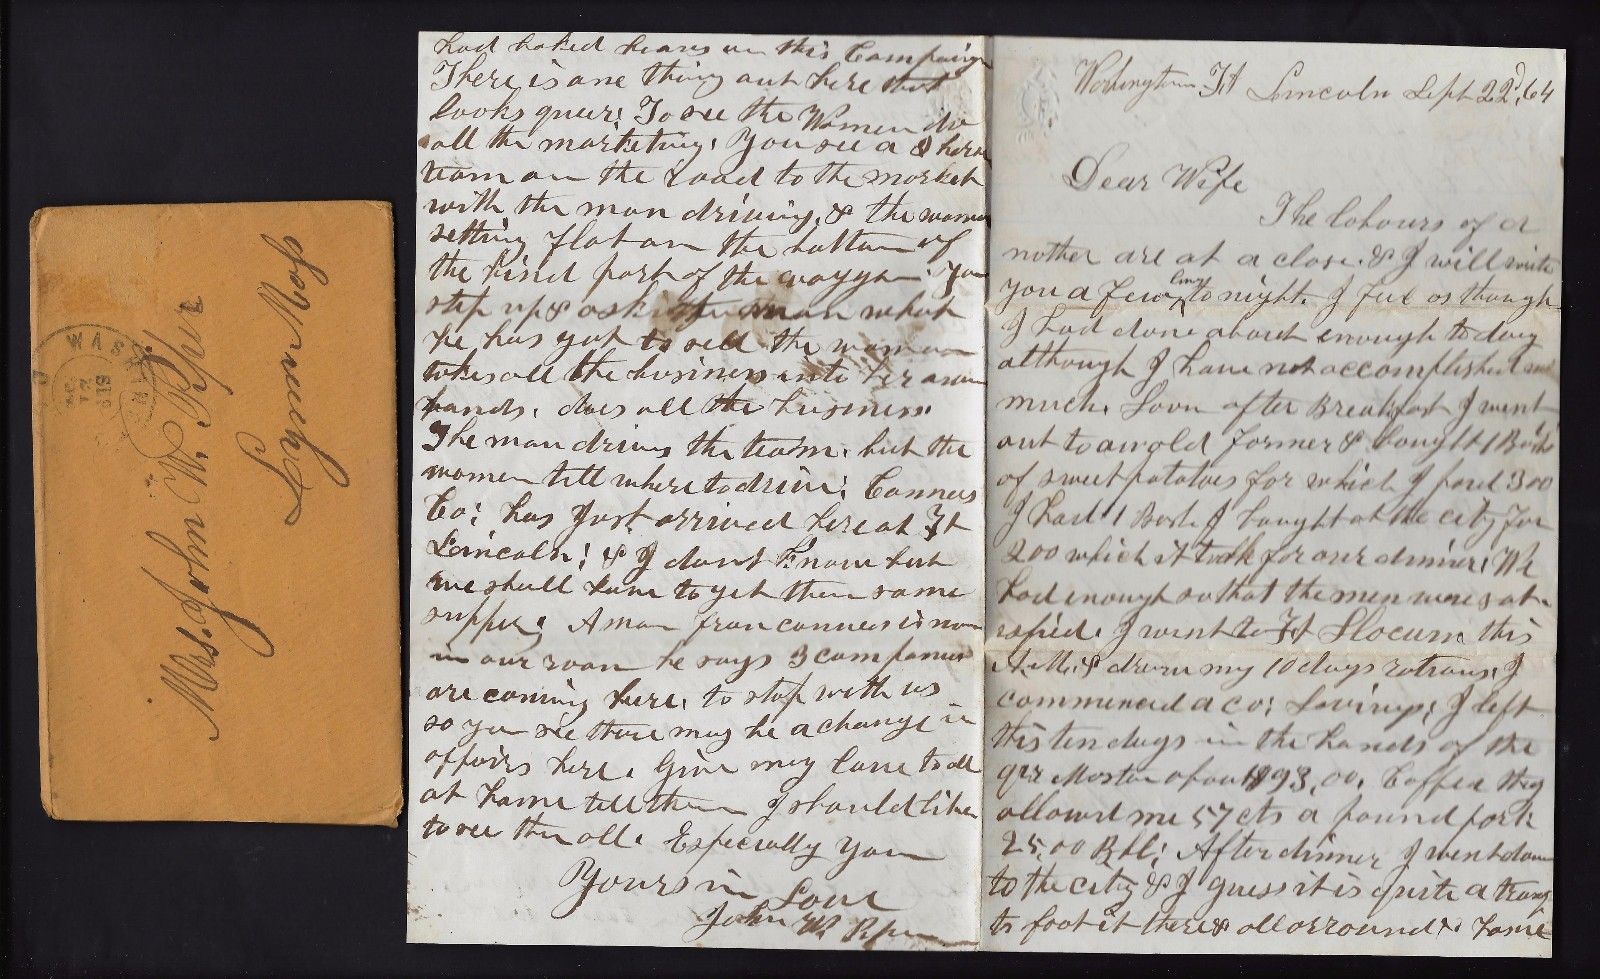 Mrs. John W. Piper
South Weymouth
WASH
SEP
Washington Ft Lincoln Sept 22d, 64
Dear Wife
The labours of a
nother are at a close. & I will write
you a few lines to night. I feel as though
I had done about enough to day
although I have not accomplished
much. Soon after Breakfast I went
out to an old farmer & bought 1 Bush
of sweet potatoes for which I paid 3 00
I had 1 Bush I bought at the city for
2 00 which it took for our dinner. We
had enough so that the men were sat-
isfied. I went to Ft Slocum this
A.M. & drawn my 10 days rations. I
commenced a co; Saving; I left
this ten days in the hands of the
qr Master about 93,00. Coffee they
allowed me 57 cts a pound pork
25,00 Bbl; After dinner I went down
to the city & I guess it is quite a tramp
to foot it there & all arround & home
had baked beans on this Campaign
There is one thing out here that
looks queer; To see the Women do
all the marketing. You see a horse
team on the road to the market
with the man driving, & the woman
setting flat on the bottom of
the hind part of the waggon You
step up & ask the man what
he has got to sell the woman
takes all the business into her own
hands, does all the business.
The man drives the team. but the
women tell where to drive;
Co; has just arrived here at Ft
Lincoln; & I dont know but
we shall have to get them some
supper; A man from is now
in our room he says 3 companies
are coming here, to stop with us
so you see there may be a change in
affairs here. Give my love to all
at home tell them I should like
to see them all. Especially you
Yours in Love
John W. Piper